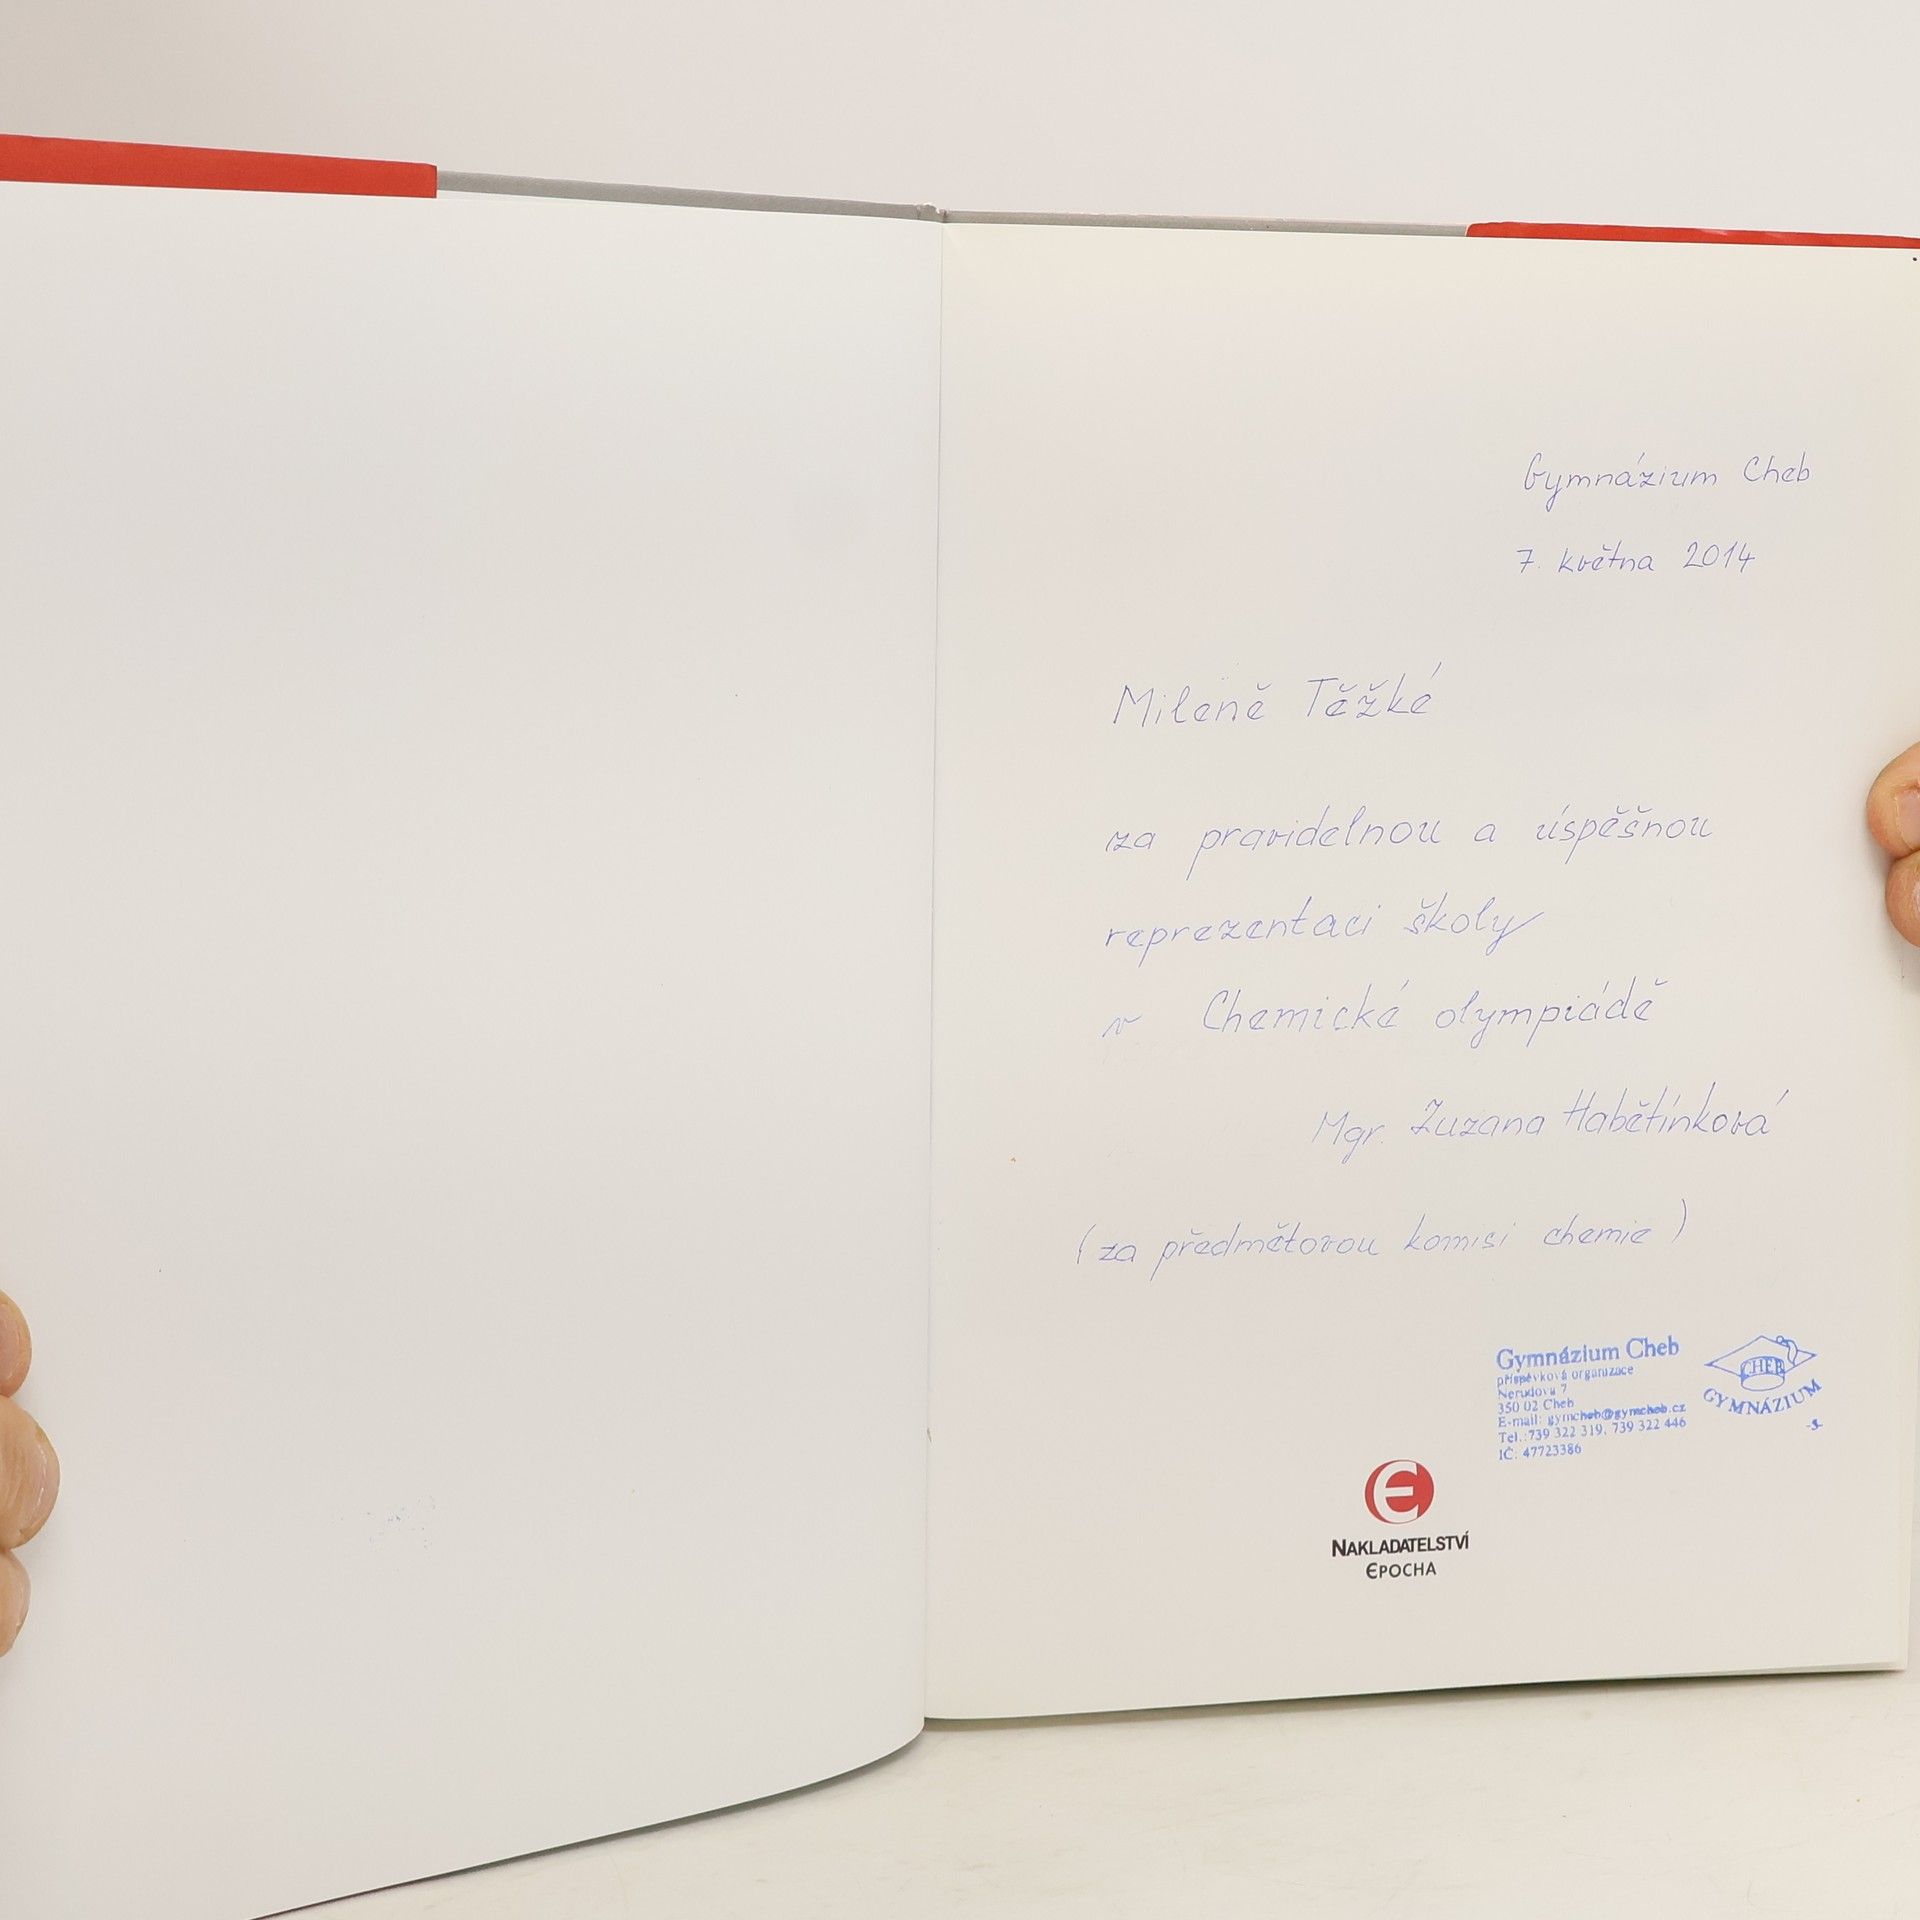 Gymnázium Cheb
7. května 2014
Mileně Těžké
za pravidelnou a úspěšnou
reprezentaci školy
v Chemické olympiádě
Mgr. Zuzana Habětínková
(za předmětovou komisi chemie)
Gymnázium Cheb
příspěvková organizace
Nerudova 7
350 02 Cheb
E-mail: gymcheb@gymcheb.cz
Tel.:739 322 319, 739 322 446
IČ: 47723386
CHEB
GYMNÁZIUM
-3-
NAKLADATELSTVÍ
EPOCHA